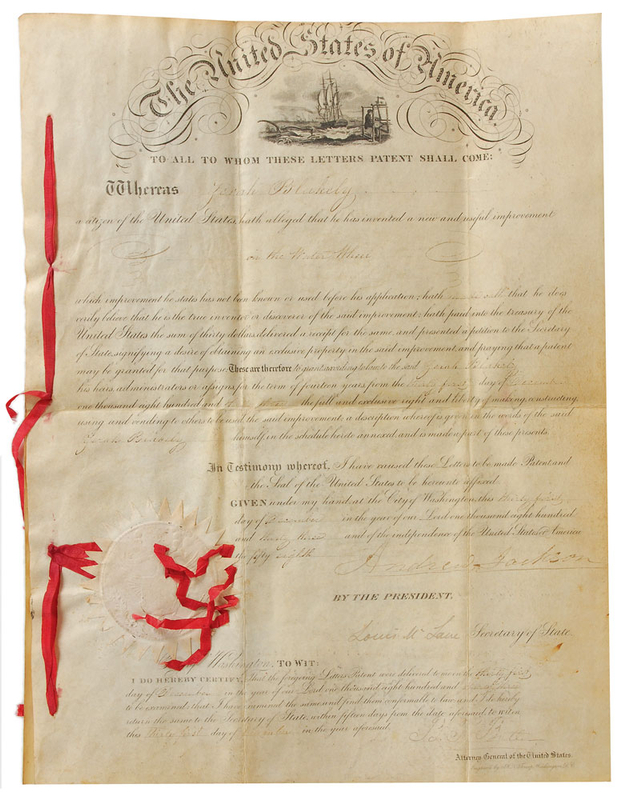 The United States of America
TO ALL TO WHOM THESE LETTERS PATENT SHALL COME:
Whereas Zerah Blakely
a citizen of the United States, hath alleged that he has invented a new and useful improvement
in the Water Wheel
which improvement he states has not been known or used before his application; hath made oath that he does
verily believe that he is the true inventor or discoverer of the said improvement; hath paid into the treasury of the
United States the sum of thirty dollars, delivered a receipt for the same, and presented a petition to the Secretary
of State, signifying a desire of obtaining an exclusive property in the said improvement, and praying that a patent
may be granted for that purpose. These are therefore to grant, according to law, to the said Zerah Blakely
his heirs, administrators or assigns, for the term of fourteen years, from the thirty first day of December
one thousand eight hundred and the full and exclusive right and liberty of making, constructing,
using and vending to others to be used the said improvement, a description whereof is given in the words of the said
Zerah Blakely himself in the schedule hereto annexed and is made a part of these presents.
In Testimony whereof, I have caused these Letters to be made Patent and
the Seal of the United States to be hereunto affixed.
GIVEN under my hand at the City of Washington this thirty first
day of December in the year of our Lord one thousand eight hundred
and thirty three and of the independence of the United States of America
the fifty eighth
Andrew Jackson
BY THE PRESIDENT.
Louis McLane Secretary of State
of Washington, TO WIT:
I DO HEREBY CERTIFY, That the foregoing Letters Patent were delivered to me on the thirty first
day of December in the year of our Lord one thousand eight hundred and thirty three
to be examined; that I have examined the same and find them conformable to law; and I do hereby
return the same to the Secretary of State, within fifteen days from the date aforesaid, to wit: on
this thirty first day of December in the year aforesaid.
Attorney General of the United States